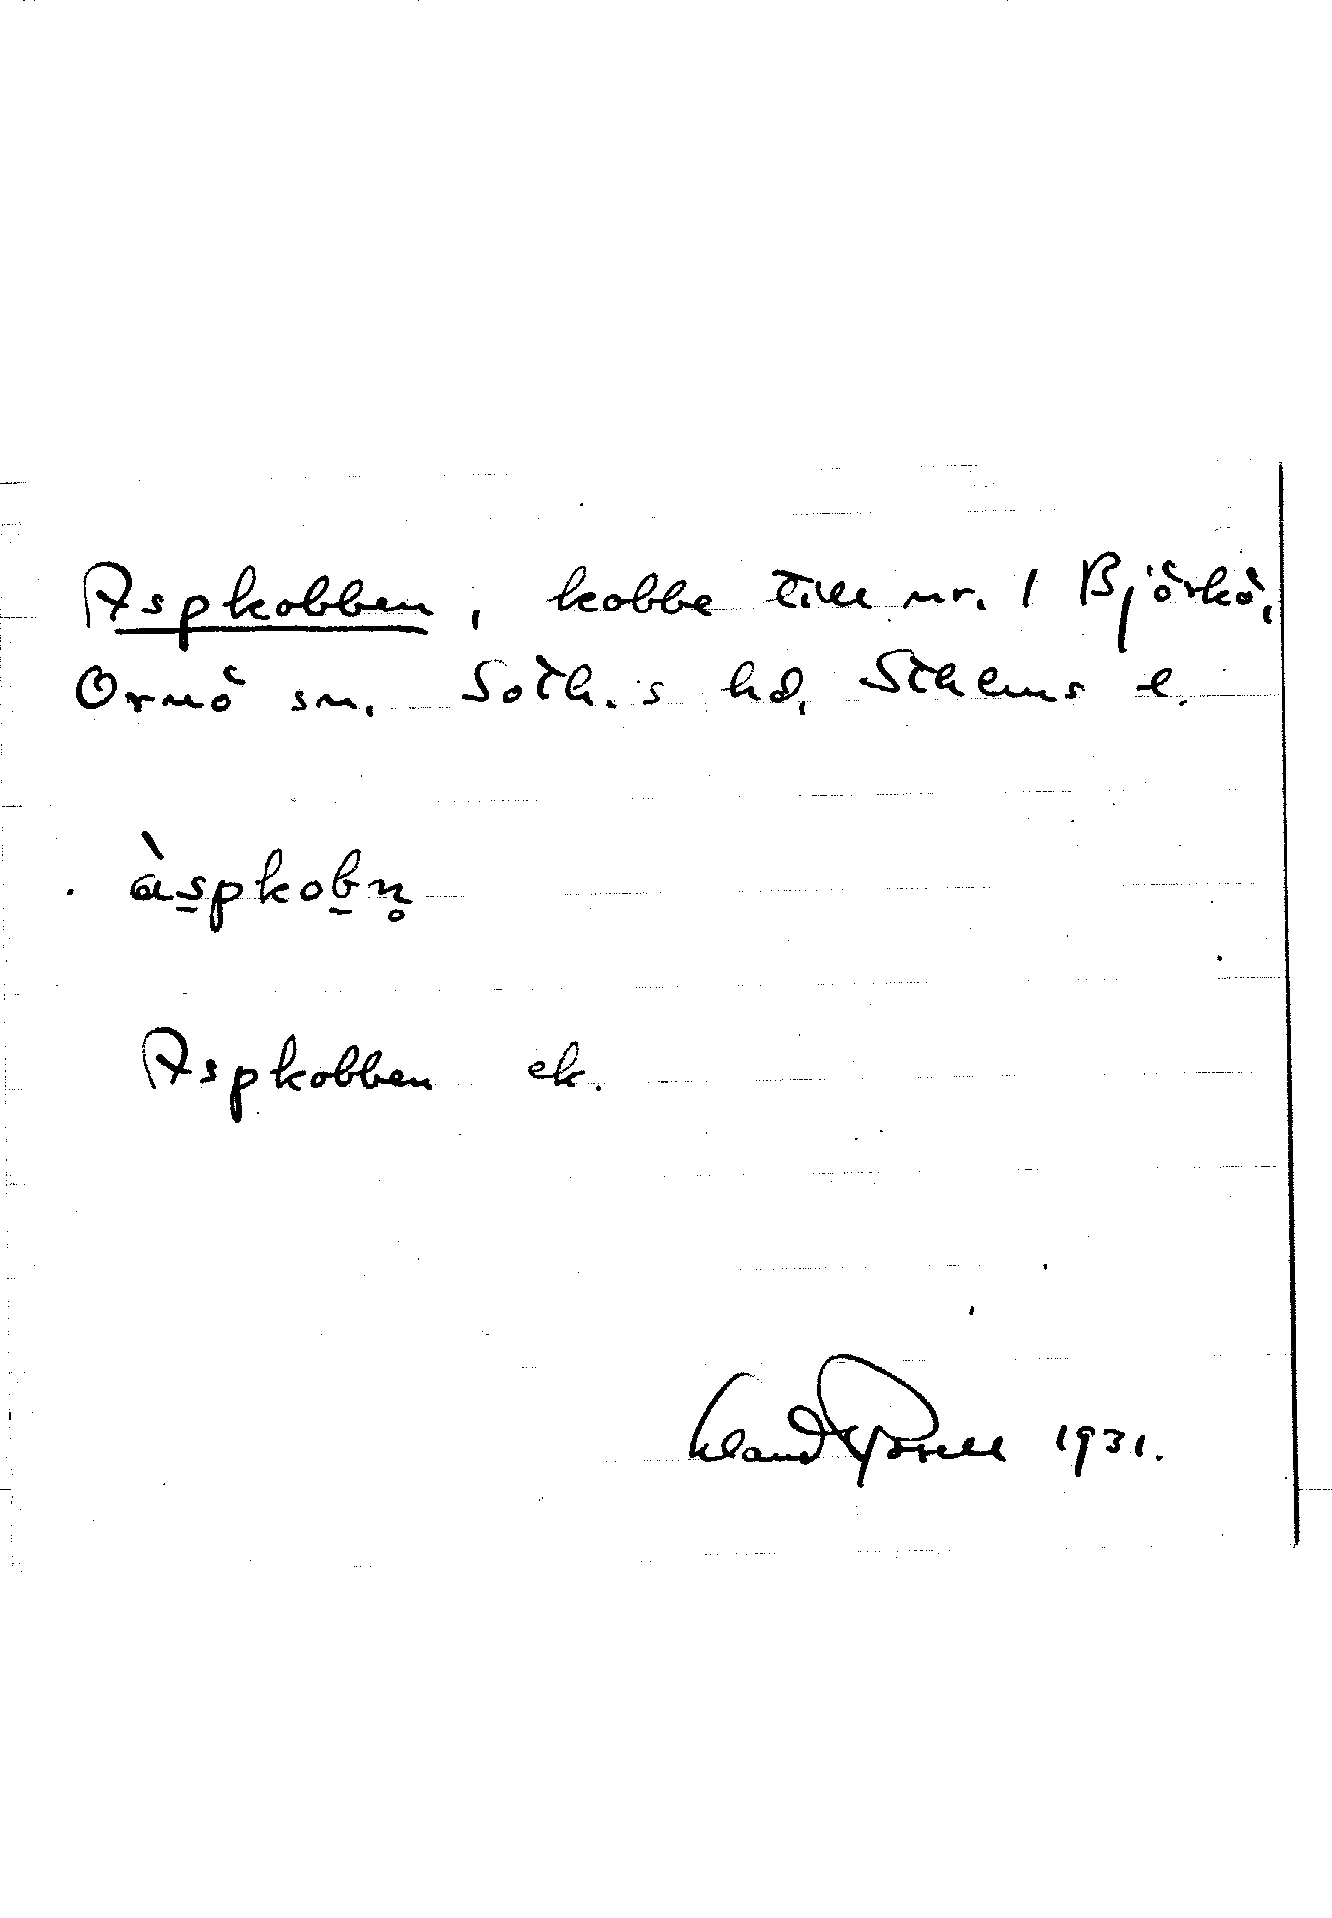 Aspkobben, kobbe till nr. 1 Björkö,
Ornö sn. Soth.s hd, Sthlms l.
às̲pkob̲n̥
Aspkobben ek.
1931.